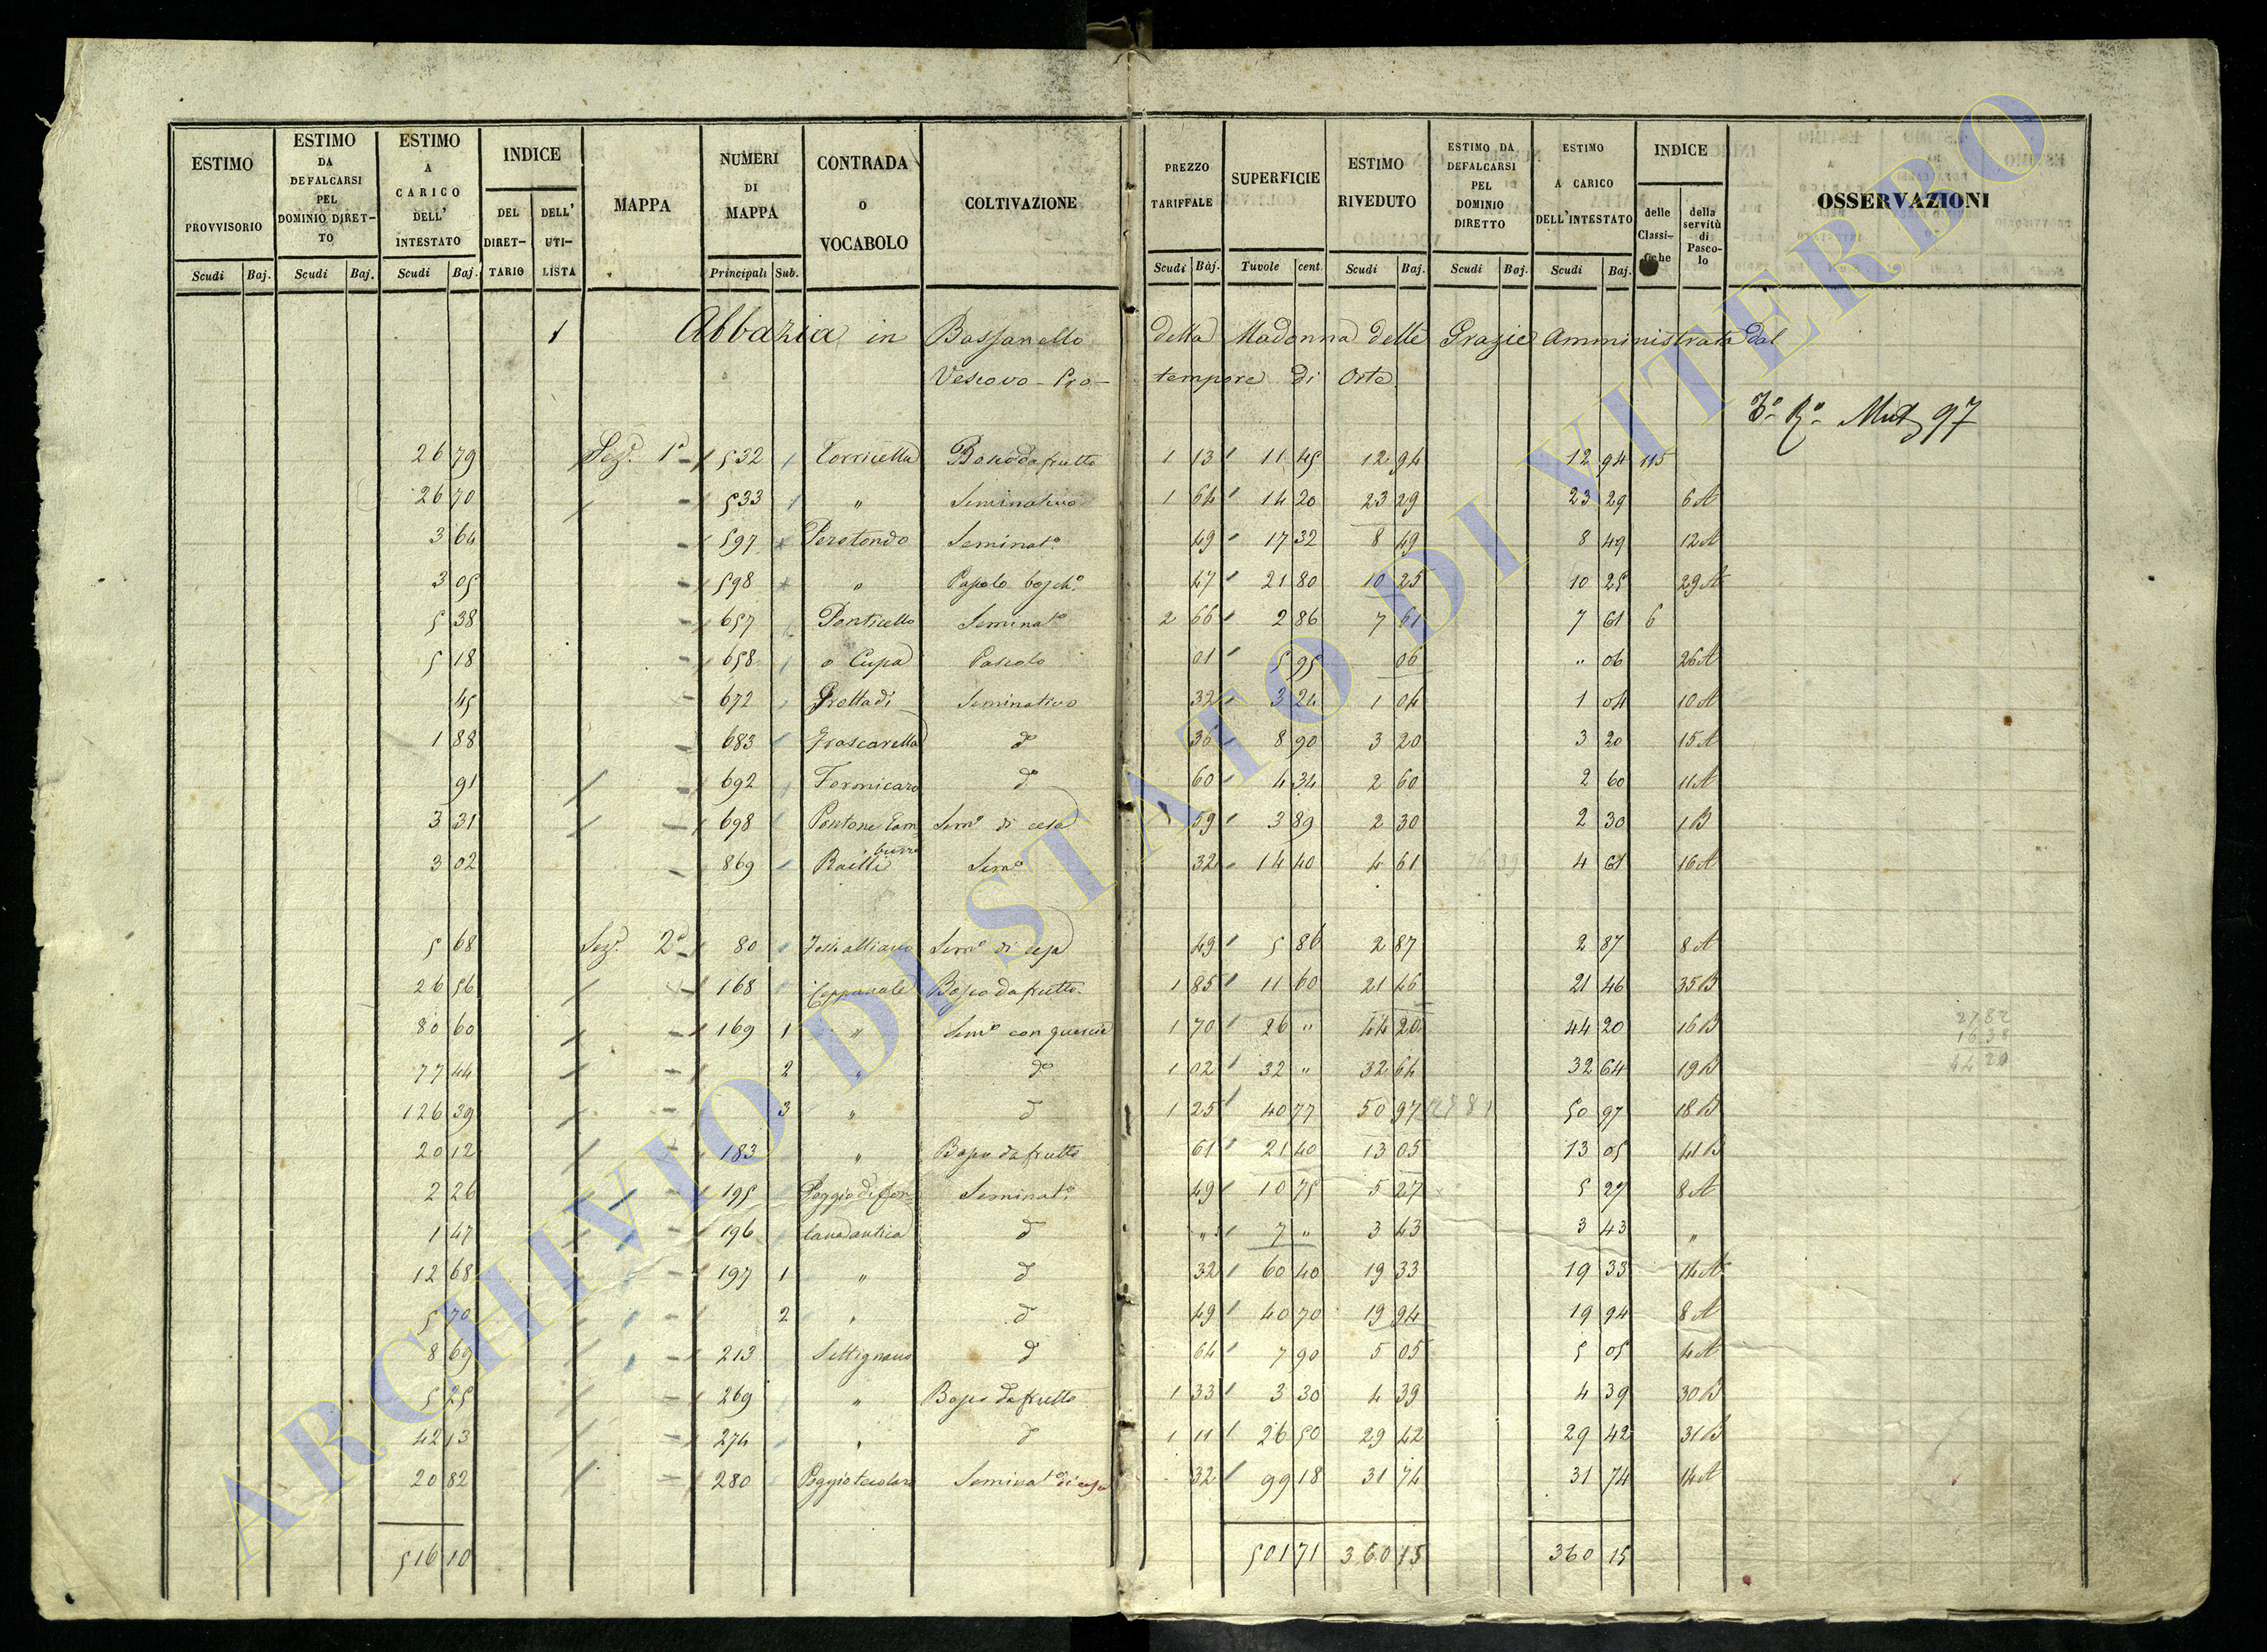 ESTIMO PROVVISORIO
ESTIMO DA DEFALCARSI PEL DOMINIO DIRET-TO
ESTIMO A CARICO DELL' INTESTATO
INDICE
DEL DIRET-TARIO
DELL' UTI-LISTA
MAPPA
NUMERI DI MAPPA
CONTRADA O VOCABOLO
COLTIVAZIONE
PREZZO TARIFFALE
SUPERFICIE
ESTIMO RIVEDUTO
ESTIMO DA DEFALCARSI PEL DOMINIO DIRETTO
ESTIMO A CARICO DELL'INTESTATO
INDICE
delle Classi-fiche
della servitù di Pasco-lo
OSSERVAZIONI
Scudi Baj. Scudi Baj. Scudi Baj. Principali Sub. Scudi Baj. Tavole cent. Scudi Baj. Scudi Baj. Scudi Baj.
1 Abbazia in Bassanello della Madonna delle Grazie Amministrata dal
Vescovo - Pro - tempore di Orte
Mut 97
26 79 Sez. 1a 532 Torricella Bosco da frutto 1 13 11 45 12 94 12 94 115
26 70 533 " Seminativo 1 64 14 20 23 29 23 29 6 A
3 64 597 Peretondo Seminato 49 17 32 8 49 8 49 12 A
3 05 598 " Pascolo bosch. 47 21 80 10 25 10 25 29 A
5 38 657 Ponticello Seminato 2 66 2 86 7 61 7 61 6
5 18 658 o Cupa Pascolo 01 5 95 06 " 06 26 A
45 672 Grotta di Seminativo 32 3 24 1 04 1 04 10 A
1 88 683 Frascarella do 36 8 90 3 20 3 20 15 A
91 692 Formicaro do 60 4 34 2 60 2 60 11 A
3 31 698 Pontone Tam- Semo di cesa 59 3 89 2 30 2 30 1 B
burro
3 02 869 Raelli Semo 32 14 40 4 61 4 61 16 A
5 68 Sez. 2a 80 Semo di cesa 49 5 86 2 87 2 87 8 A
26 56 168 Bosco da frutto 1 85 11 60 21 46 21 46 35 B
80 60 169 1 " Semo con quercie 1 70 26 " 44 20 44 20 16 B
27 82
16 38
44 20
77 44 2 " do 1 02 32 " 32 64 32 64 19 B
126 39 3 " do 1 25 40 77 50 97 50 97 18 B
20 12 183 " Bosco da frutto 61 21 40 13 05 13 05 41 B
2 26 195 Poggio di fon- Seminato 49 10 75 5 27 5 27 8 A
1 47 196 tana antica do " 7 " 3 43 3 43 "
12 68 197 1 " do 32 60 40 19 33 19 33 14 A
5 70 2 " do 49 40 70 19 94 19 94 8 A
8 69 213 Settignano do 64 7 90 5 05 5 05 4 A
5 25 269 " Bosco da frutto 1 33 3 30 4 39 4 39 30 B
42 13 274 " do 1 11 26 50 29 42 29 42 31 B
20 82 280 Seminato di cesa 32 99 18 31 74 31 74 14 A
516 10 501 71 360 15 360 15
ARCHIVIO DI STATO DI VITERBO